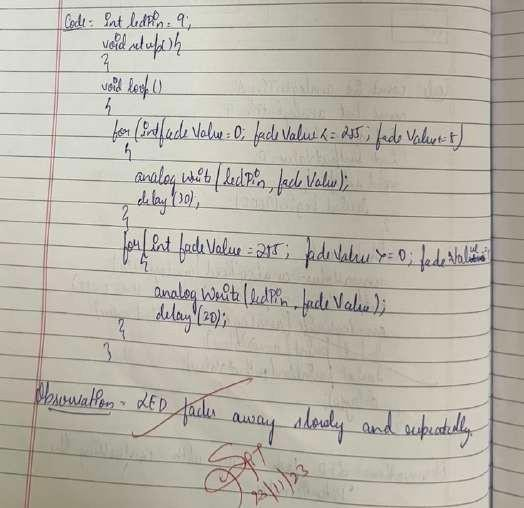 Code :- int ledPin = 9;
void setup() {
}
void loop()
{
for (int fade Value = 0; fade Value <= 255; fade Value += 5)
{
analog Write (ledPin, fade Value);
delay (30);
}
for (int fade Value = 255; fade Value >= 0; fade Value
{
analog Write (ledPin, fade Value);
delay (20);
}
}
Observation - LED fades away slowly and repeatedly.
23/11/23